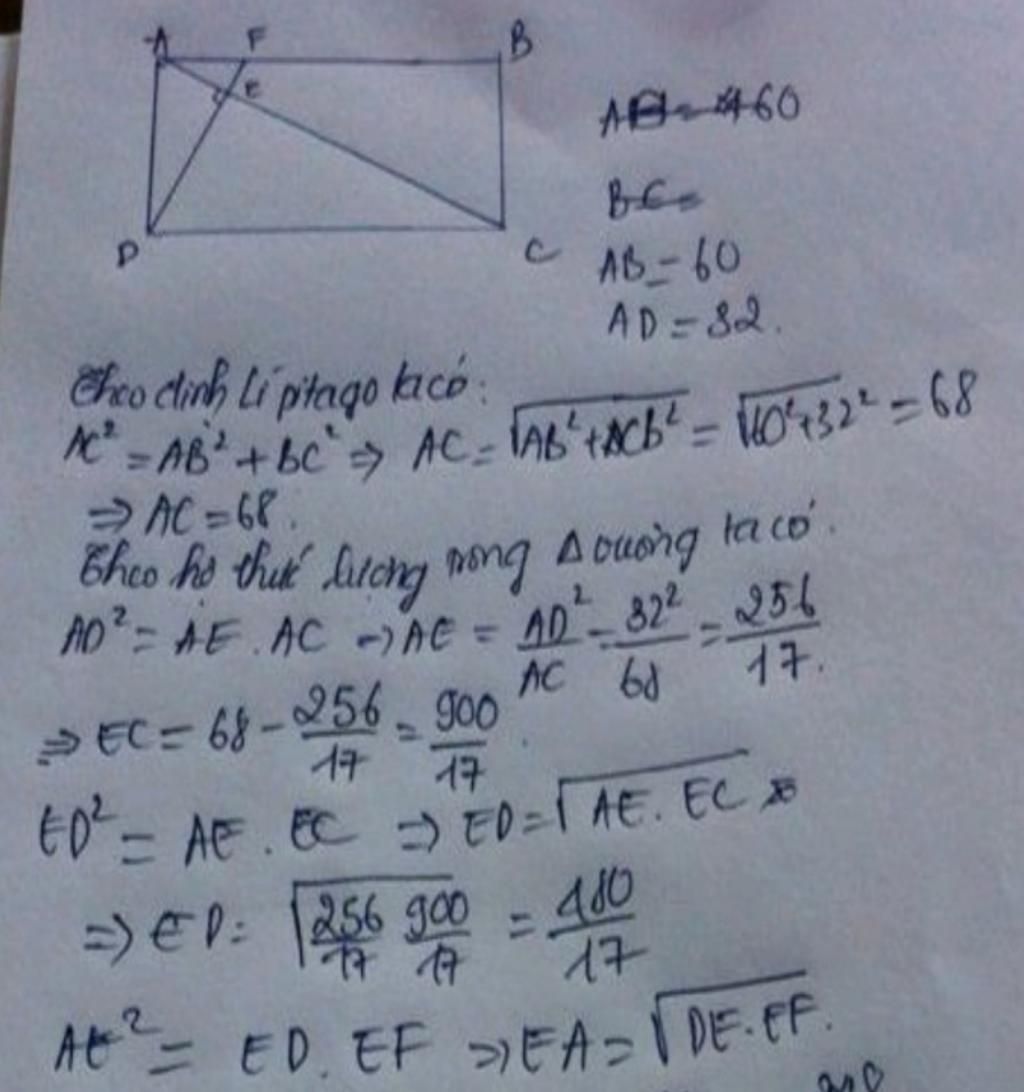 A F B
E
D C
AB = 460
BC =
AB = 60
AD = 32.
Theo định lí pitago ta có:
AC² = AB² + BC² ⇒ AC = √(AB² + CB²) = √(60² + 32²) = 68
⇒ AC = 68.
Theo hệ thức lượng trong Δ vuông ta có.
AD² = AE . AC → AE = AD²/AC = 32²/68 = 256/17.
⇒ EC = 68 - 256/17 = 900/17.
ED² = AE . EC ⇒ ED = √(AE . EC)
⇒ ED = √(256/17 900/17) = 480/17
AE² = ED . EF ⇒ EA = √(DE . EF).